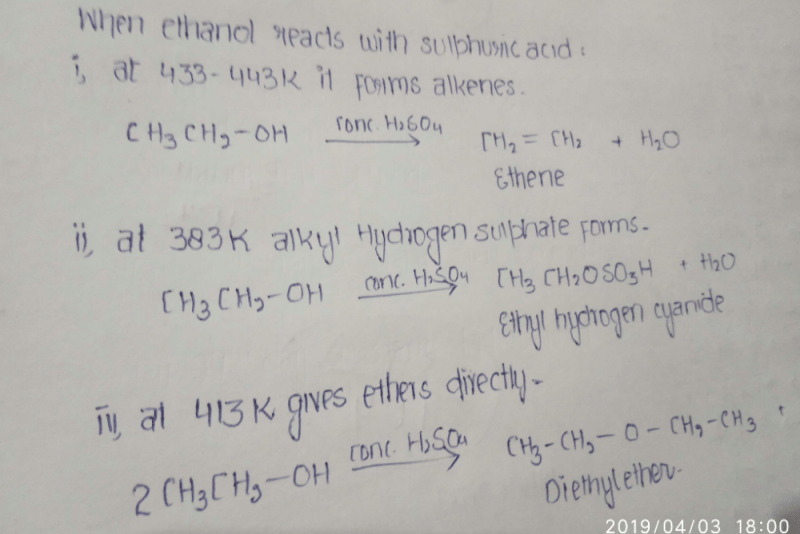 When ethanol reacts with sulphuric acid:
i, at 433-443K it forms alkenes.
CH3CH2-OH conc. H2SO4 CH2 = CH2 + H2O
Ethene
ii, at 383K alkyl Hydrogen sulphate forms-
CH3CH2-OH conc. H2SO4 CH3CH2OSO3H + H2O
Ethyl hydrogen cyanide
iii, at 413K gives ethers directly-
2 CH3CH2-OH conc. H2SO4 CH3-CH2-O-CH2-CH3
Diethylether-
2019/04/03 18:00